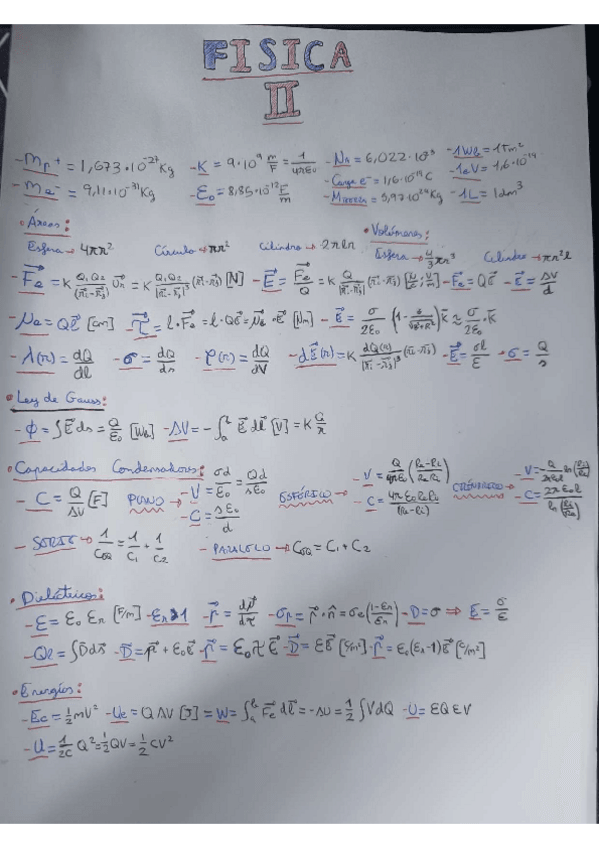 FISICA
II
- mp+ = 1,673·10^-27 Kg - K = 9·10^9 m/F = 1/4πε0 - NA = 6,022·10^ - 1Wb = 1Tm²
- me- = 9,11·10^-31 Kg - ε0 = 8,85·10^-12 F/m - Carga e- = 1,6·10^-19 C - 1eV = 1,6·10^-19
- = 5,97·10^24 Kg - 1L = 1dm³
• Áreas: • Volúmenes:
Esfera → 4πr² Círculo → πr² Cilindro → 2πrl Esfera → 4/3 πr³ Cilindro → πr²l
- Fe = K Q1Q2/(r1-r2) Ur = K Q1Q2/|r1-r2|³ (r1-r2) [N] - E = Fe/Q = K Q/|r1-r2|³ (r1-r2) - Fe = QE - E = ΔV/d
- μe = Ql [Cm] τ = l·Fe = l·QE = μe·E [Nm] - E = σ/2ε0 ≈ σ/2ε0 · K
- λ(r) = dQ/dl - σ = dQ/ds - ρ(r) = dQ/dV - dE(r) = K dQ(r)/|r1-r2|³ (r1-r2) - σ = Q/s
• Ley de Gauss:
- Φ = ∫E ds = Q/ε0 [Wb] - ΔV = - ∫ab E dl [V] = K Q/r
• Capacidades Condensadores:
- C = Q/ΔV [F] PLANO → - V = σd/ε0 = Qd/sε0 ESFÉRICO → - V = Q/4πε0 (Re-Ri/ReRi) CILÍNDRICO → - V =
- C = sε0/d - C = 4πε0ReRi/(Re-Ri) - C = 2πε0l/ln
- SERIE → 1/Ceq = 1/C1 + 1/C2 - PARALELO → Ceq = C1 + C2
• Dieléctricos:
- E = ε0 εr [F/m] - εr>1 - P = - σp = P·n = - D = σ ⇒ E = σ/ε
- Ql = ∫D ds - D = P + ε0E - P = ε0 χ E - D = εE [C/m²] - P = ε0(εr-1)E [C/m²]
• Energías:
- Ec = ½mV² - Ue = QΔV [J] = W = ∫ab Fe dl = -ΔU = ½∫VdQ - U =
- U = 1/2C Q² = ½QV = ½CV²